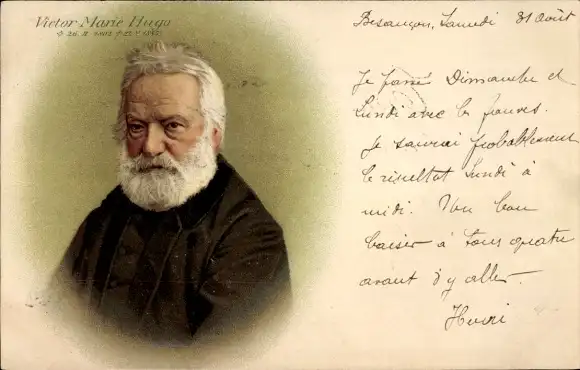 Victor Marie Hugo
26. II 1802 † 22 V 1885
Besançon, Samedi 31 août
Je passe Dimanche et
Lundi avec les
Je saurai probablement
le résultat Lundi à
midi. Un bon
baiser à tous quatre
avant d'y aller.
Henri